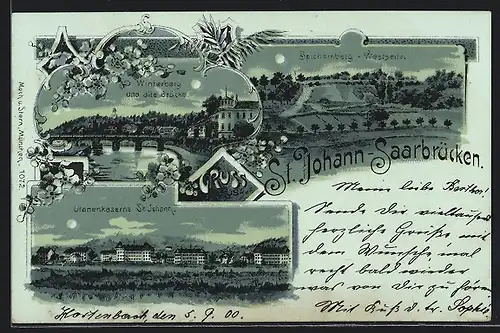 Winterberg
und alte Brücke.
Spicherberg - Westseite.
Gruss
St. Johann-Saarbrücken.
Ulanenkaserne St. Johann.
Moch u. Stern, München. 1072.
Meine liebe
Sende dir vieltausend
herzliche Grüße mit
dem Wunsche mal
recht bald wieder
was von dir zu hören
Mit Kuß d. tr. Sophie
den 5. 9. 00.